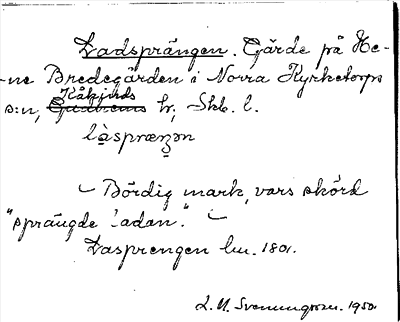 Ladsprängen. Gärde på He-
-ne Bredegården i Norra Kyrketorps
Kåkinds
s:n, Gudhems hr, Skb. l.
là̱spræŋən
Bördig mark, vars skörd
"sprängde ladan."
Lasprengen lm. 1801.
L. M. Svenungsson. 1950.